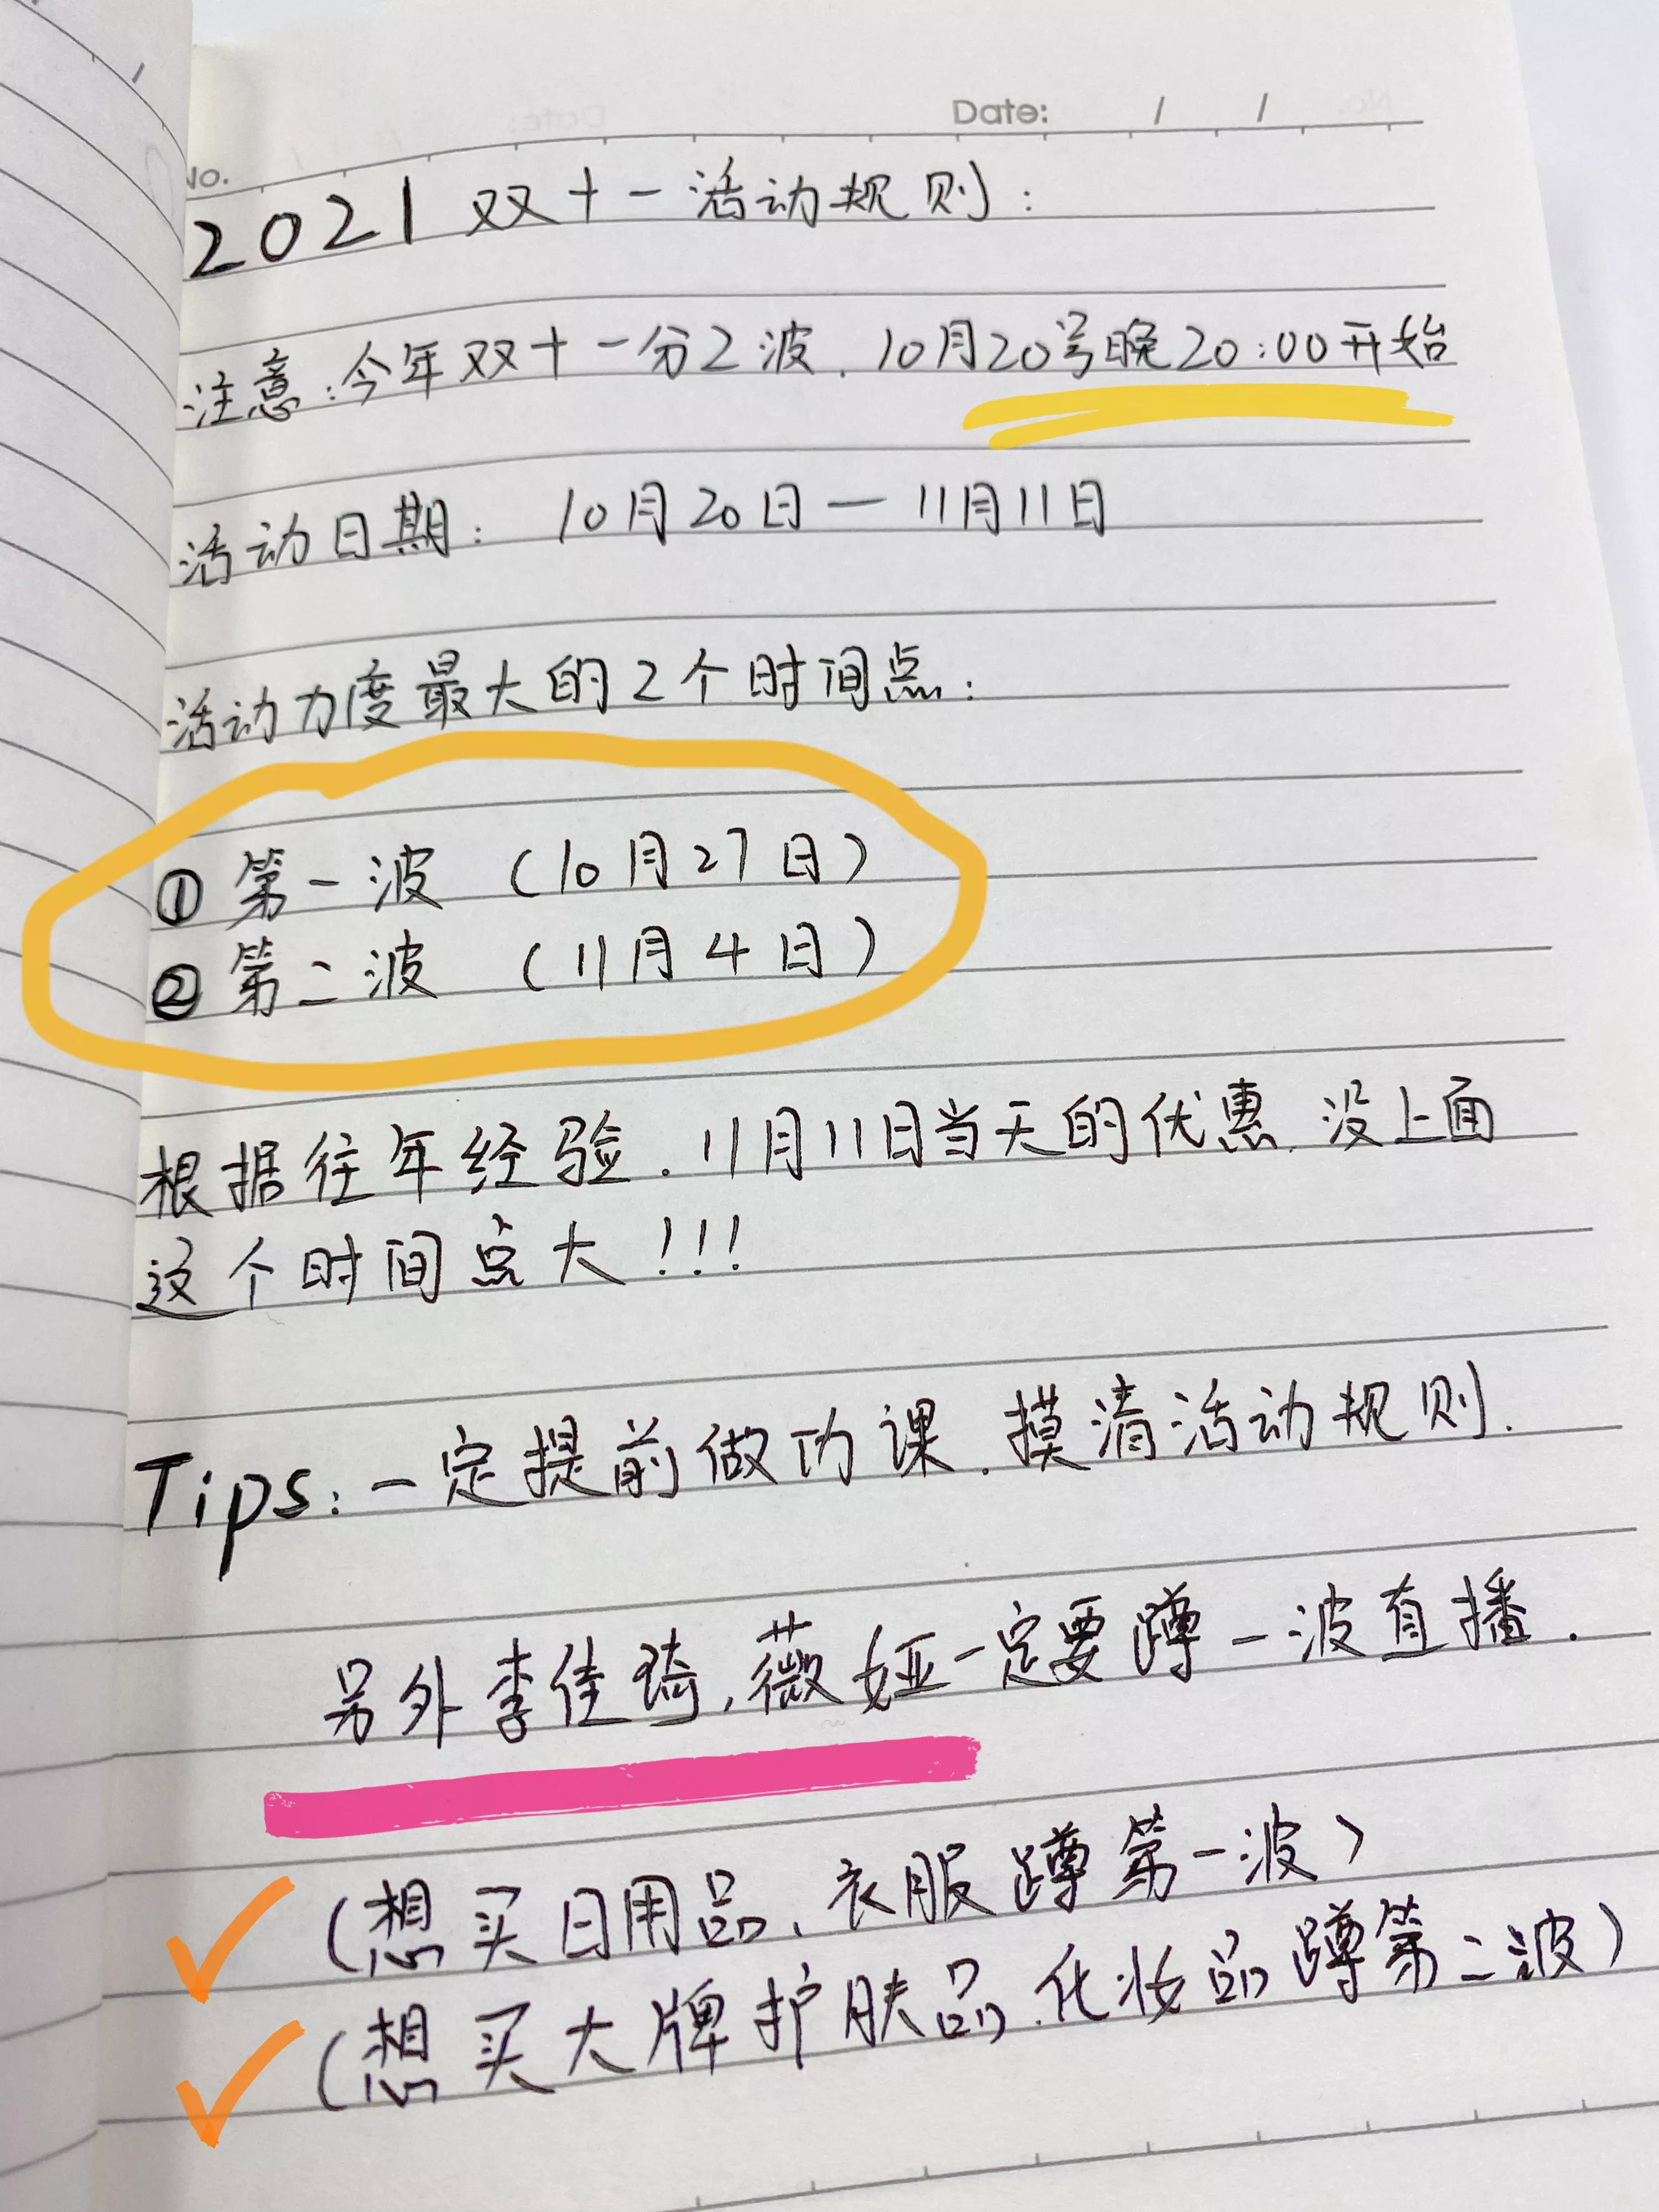 Date: / /
No.
2021 双十一活动规则:
注意:今年双十一分2波.10月20号晚20:00开始
活动日期: 10月20日—11月11日
活动力度最大的2个时间点:
① 第一波 (10月27日)
② 第二波 (11月4日)
根据往年经验.11月11日当天的优惠.没上面
这个时间点大!!!
Tips:一定提前做功课.摸清活动规则.
另外李佳琦,薇娅一定要蹲一波直播.
(想买日用品、衣服蹲第一波)
(想买大牌护肤品.化妆品蹲第二波)